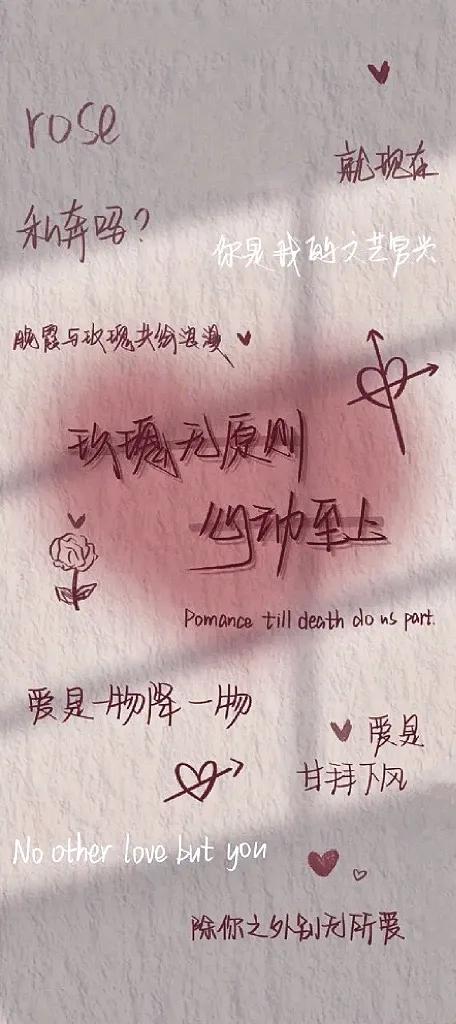 rose
就现在
私奔吗?
你是我的文艺冒兴
晚霞与玫瑰共纷浪漫
玫瑰无原则
心动至上
Pomance till death do us part.
爱是一物降一物
爱是
甘拜下风
No other love but you
除你之外别无所爱